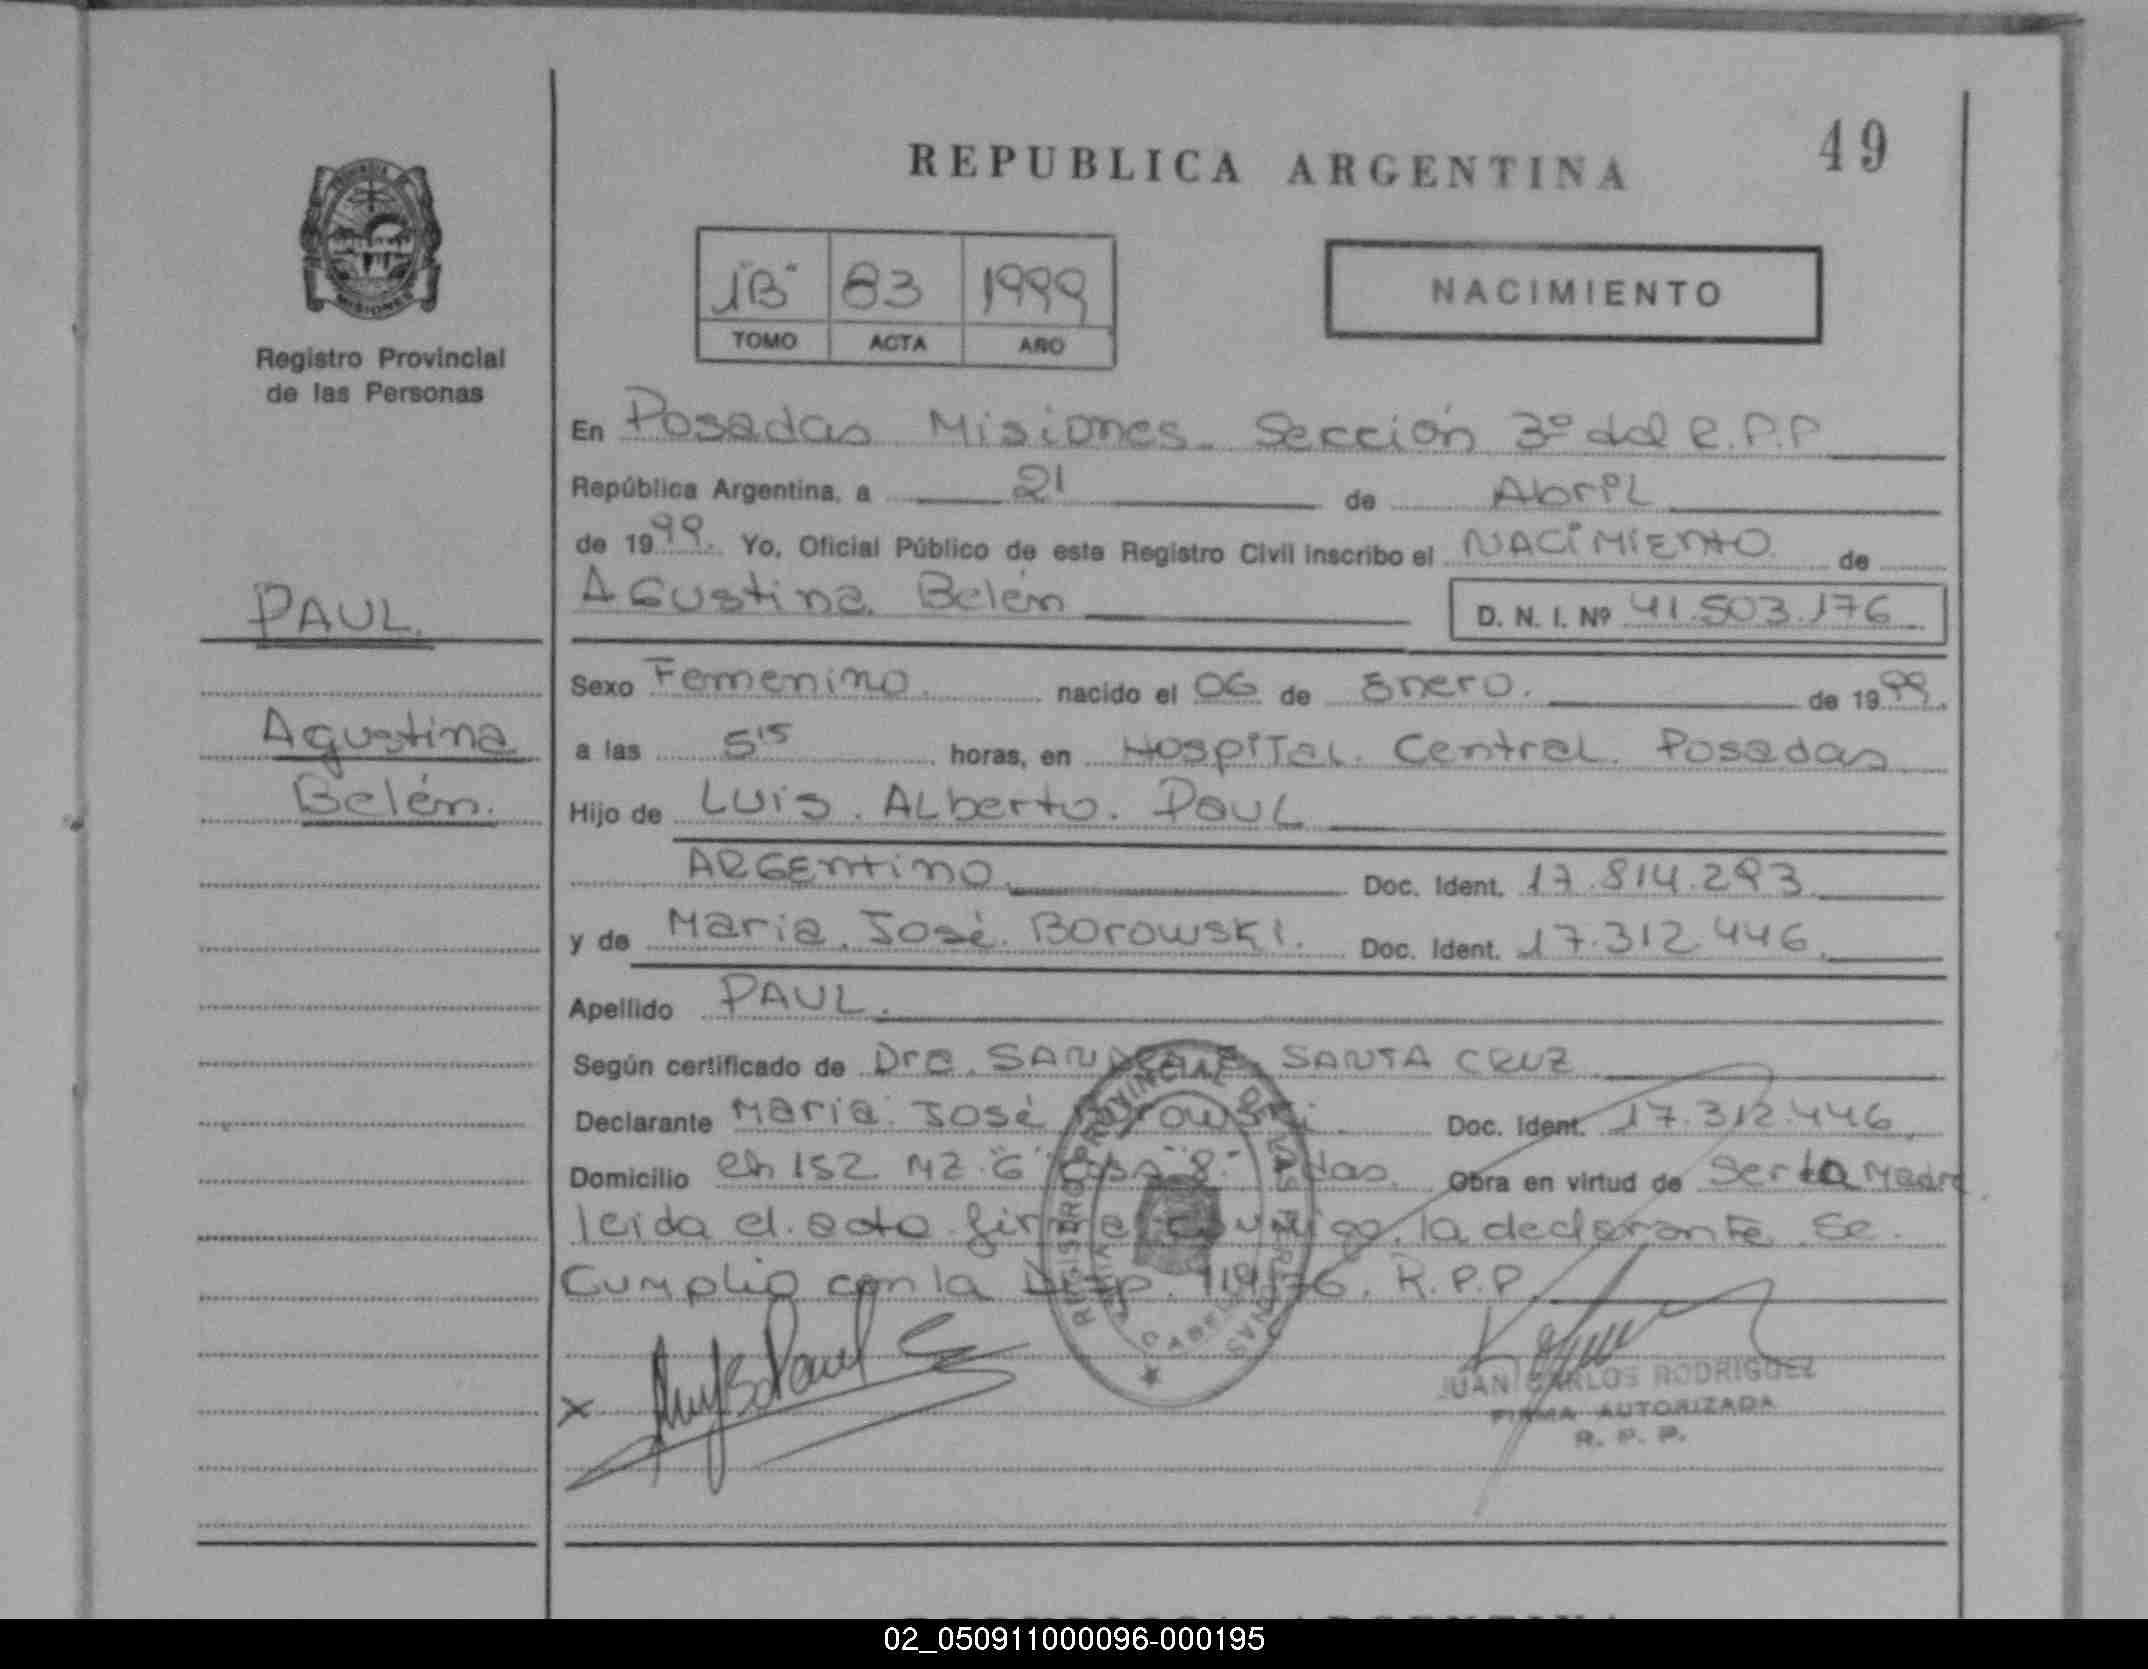 REPUBLICA ARGENTINA
49
PROVINCIA
MISIONES
Registro Provincial
de las Personas
1"B" 83 1999
TOMO ACTA AÑO
NACIMIENTO
En Posadas Misiones. Sección 3º del R.P.P
República Argentina, a 21 de Abril
de 1999. Yo, Oficial Público de este Registro Civil inscribo el NACIMIENTO de
Agustina Belén D. N. I. Nº 41.503.176
PAUL.
Agustina
Belén.
Sexo Femenino. nacido el 06 de Enero. de 1999.
a las 5 15 horas, en Hospital Central Posadas
Hijo de Luis Alberto. Paul
ARGentino Doc. Ident. 17.814.293
y de Maria José Borowski. Doc. Ident. 17.312.446.
Apellido PAUL.
Según certificado de Dra. SANTA CRUZ
Declarante Maria José Borowski. Doc. Ident. 17.312.446.
Domicilio ch 152 MZ "G" "8" Obra en virtud de Ser la Madre.
leida el acta firma conmigo la declarante Se
Cumplio con la Disp. 119/76. R.P.P
REGISTRO PROVINCIAL DE LAS PERSONAS
x
JUAN CARLOS RODRIGUEZ
FIRMA AUTORIZADA
R. P. P.
REPUBLICA ARGENTINA
02_050911000096-000195